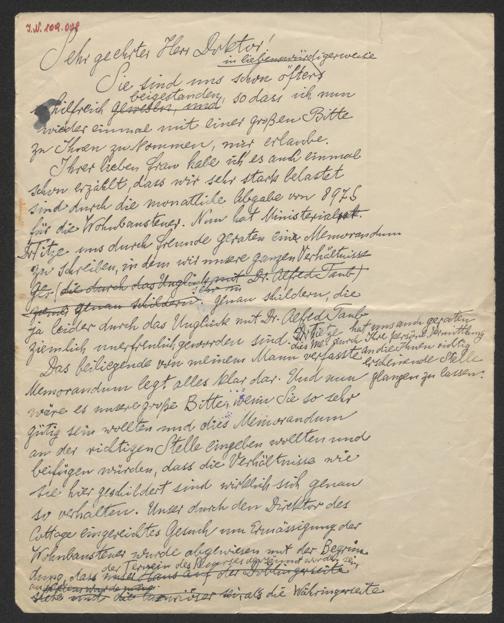 J.N. 109.008
Sehr geehrter Herr Doktor!
in liebenswürdigerweise
Sie sind uns schon öfters
beigestanden
hilfreich gewesen, und, so dass ich nun
wieder einmal mit einer großen Bitte
zu Ihnen zu kommen, mir erlaube.
Ihrer lieben Frau habe ich es auch einmal
schon erzählt, dass wir sehr stark belastet
sind durch die monatliche Abgabe von 897 S
für die Wohnbausteuer. Nun hat Ministerialrat
Dr Titze uns durch Freunde geraten ein Memorandum
zu schreiben, in dem wir unsere ganzen Verhältnisse
(die durch das Unglück mit Dr. Alfred
genau schildern, die
ja leider durch das Unglück mit Dr. Alfred
ziemlich unerfreulich geworden sind. Dr Titze hat uns auch geraten
dies nur durch Ihre persönl. Vermittlung
Das beiliegende von meinem Mann verfasste an die Ihnen richtig
erscheinende Stelle
Memorandum legt alles klar dar. Und nun gelangen zu lassen.
wäre es unsere große Bitte, wenn Sie so sehr
gütig sein wollten und dies Memorandum
an der richtigen Stelle eingeben wollten und
beifügen würden, dass die Verhältnisse wie
sie hier geschildert sind wirklich sich genau
so verhalten. Unser durch den Direktor des
Cottage eingereichtes Gesuch um Ermässigung der
Wohnbausteuer wurde abgewiesen mit der Begrün
dung, dass unser Haus auf der Döblingerseite
und die als die Währingerseite